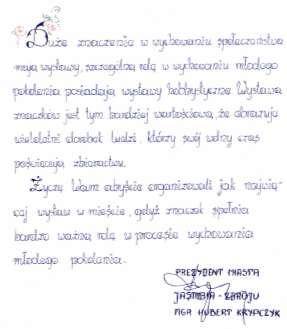 Duże znaczenie w wychowaniu społeczeństwa
mają wystawy, szczególną rolę w wychowaniu młodego
pokolenia posiadają wystawy hobbystyczne. Wystawa
znaczków jest tym bardziej wartościowa, że obrazuje
wieloletni dorobek ludzi, którzy swój wolny czas
poświęcają zbieractwu.
Życzę Wam abyście organizowali jak najwię-
cej wystaw w mieście, gdyż znaczek spełnia
bardzo ważną rolę w procesie wychowania
młodego pokolenia.
PREZYDENT MIASTA
JASTRZĘBIA - ZDROJU
MGR HUBERT KRYPCZYK